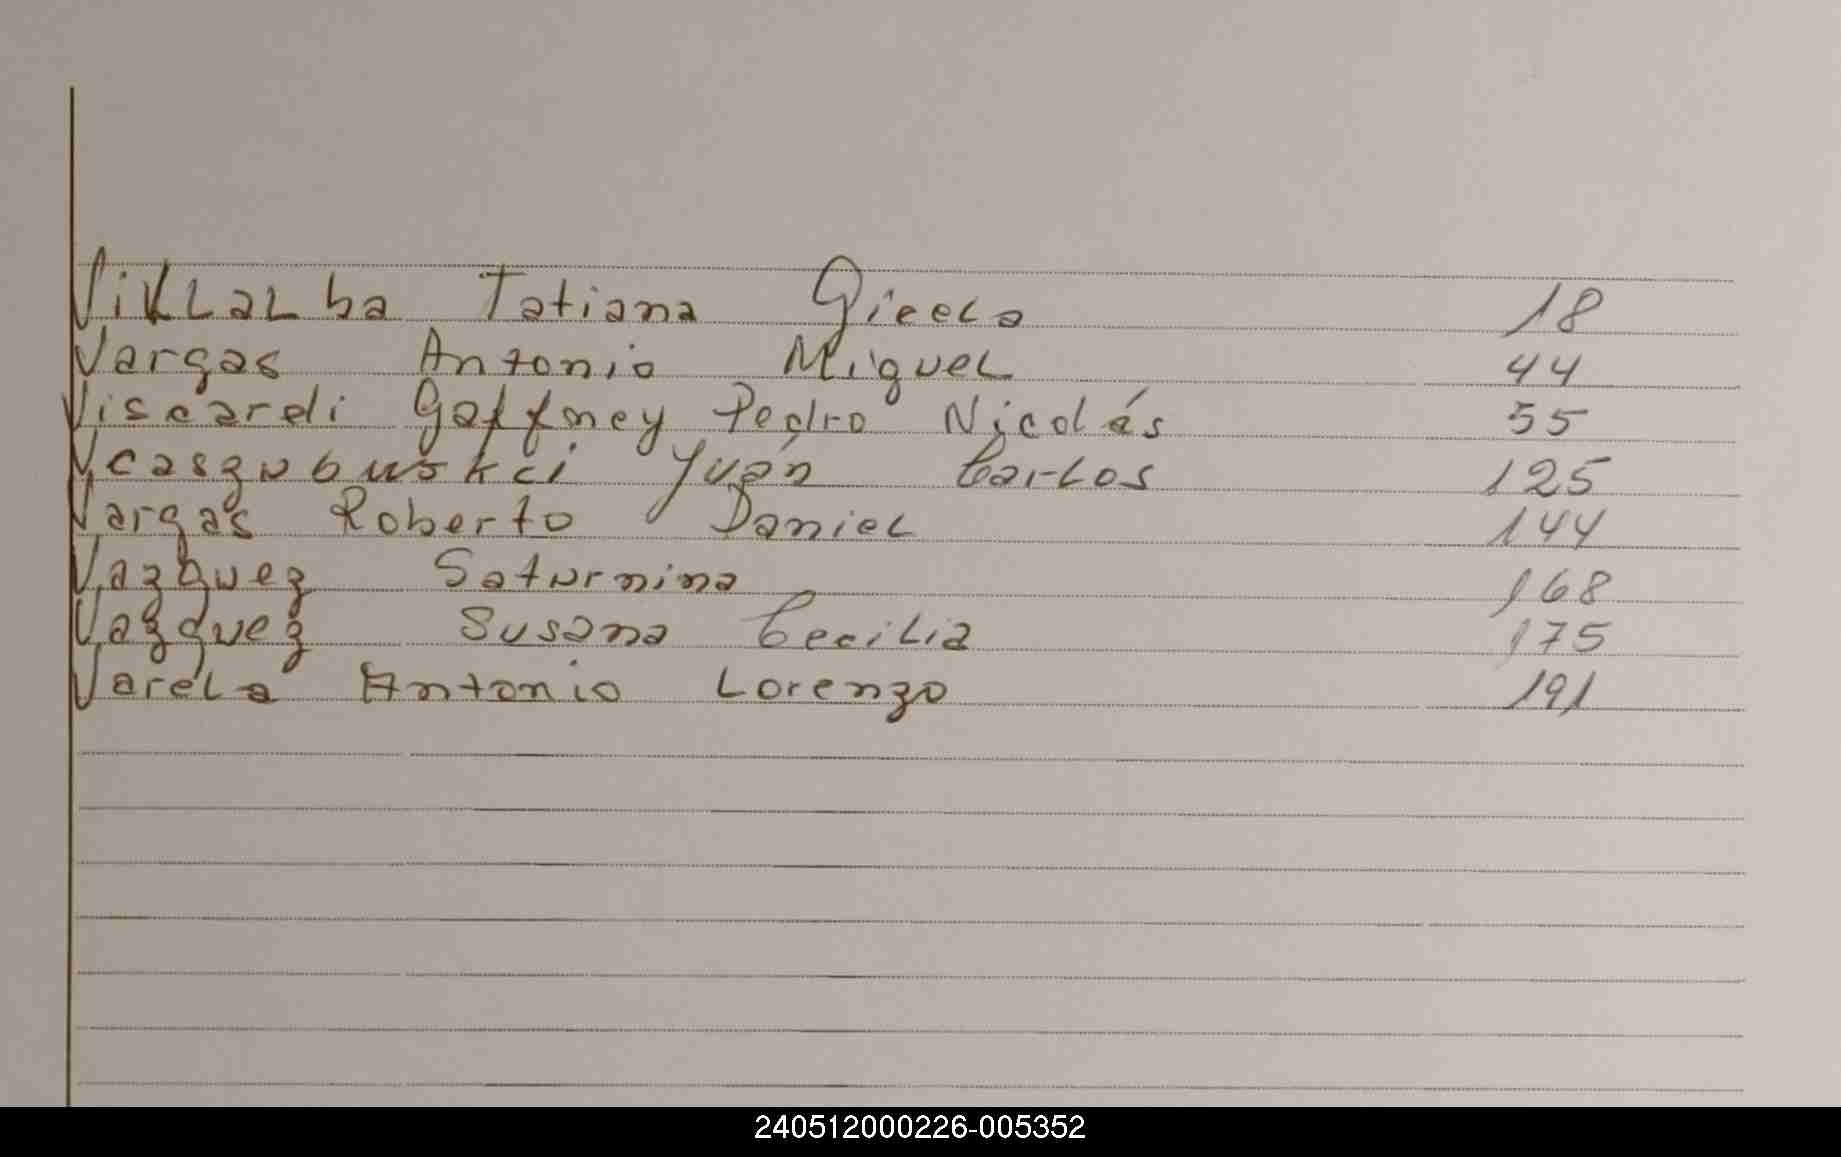 Villalba Tatiana Gieela 18
Vargas Antonio Miguel 44
Viscardi Gaffney Pedro Nicolás 55
Yván Carlos 125
Vargas Roberto Daniel 144
Vazquez Saturnina 168
Vazquez Susana Cecilia 175
Varela Antonio Lorenzo 191
240512000226-005352